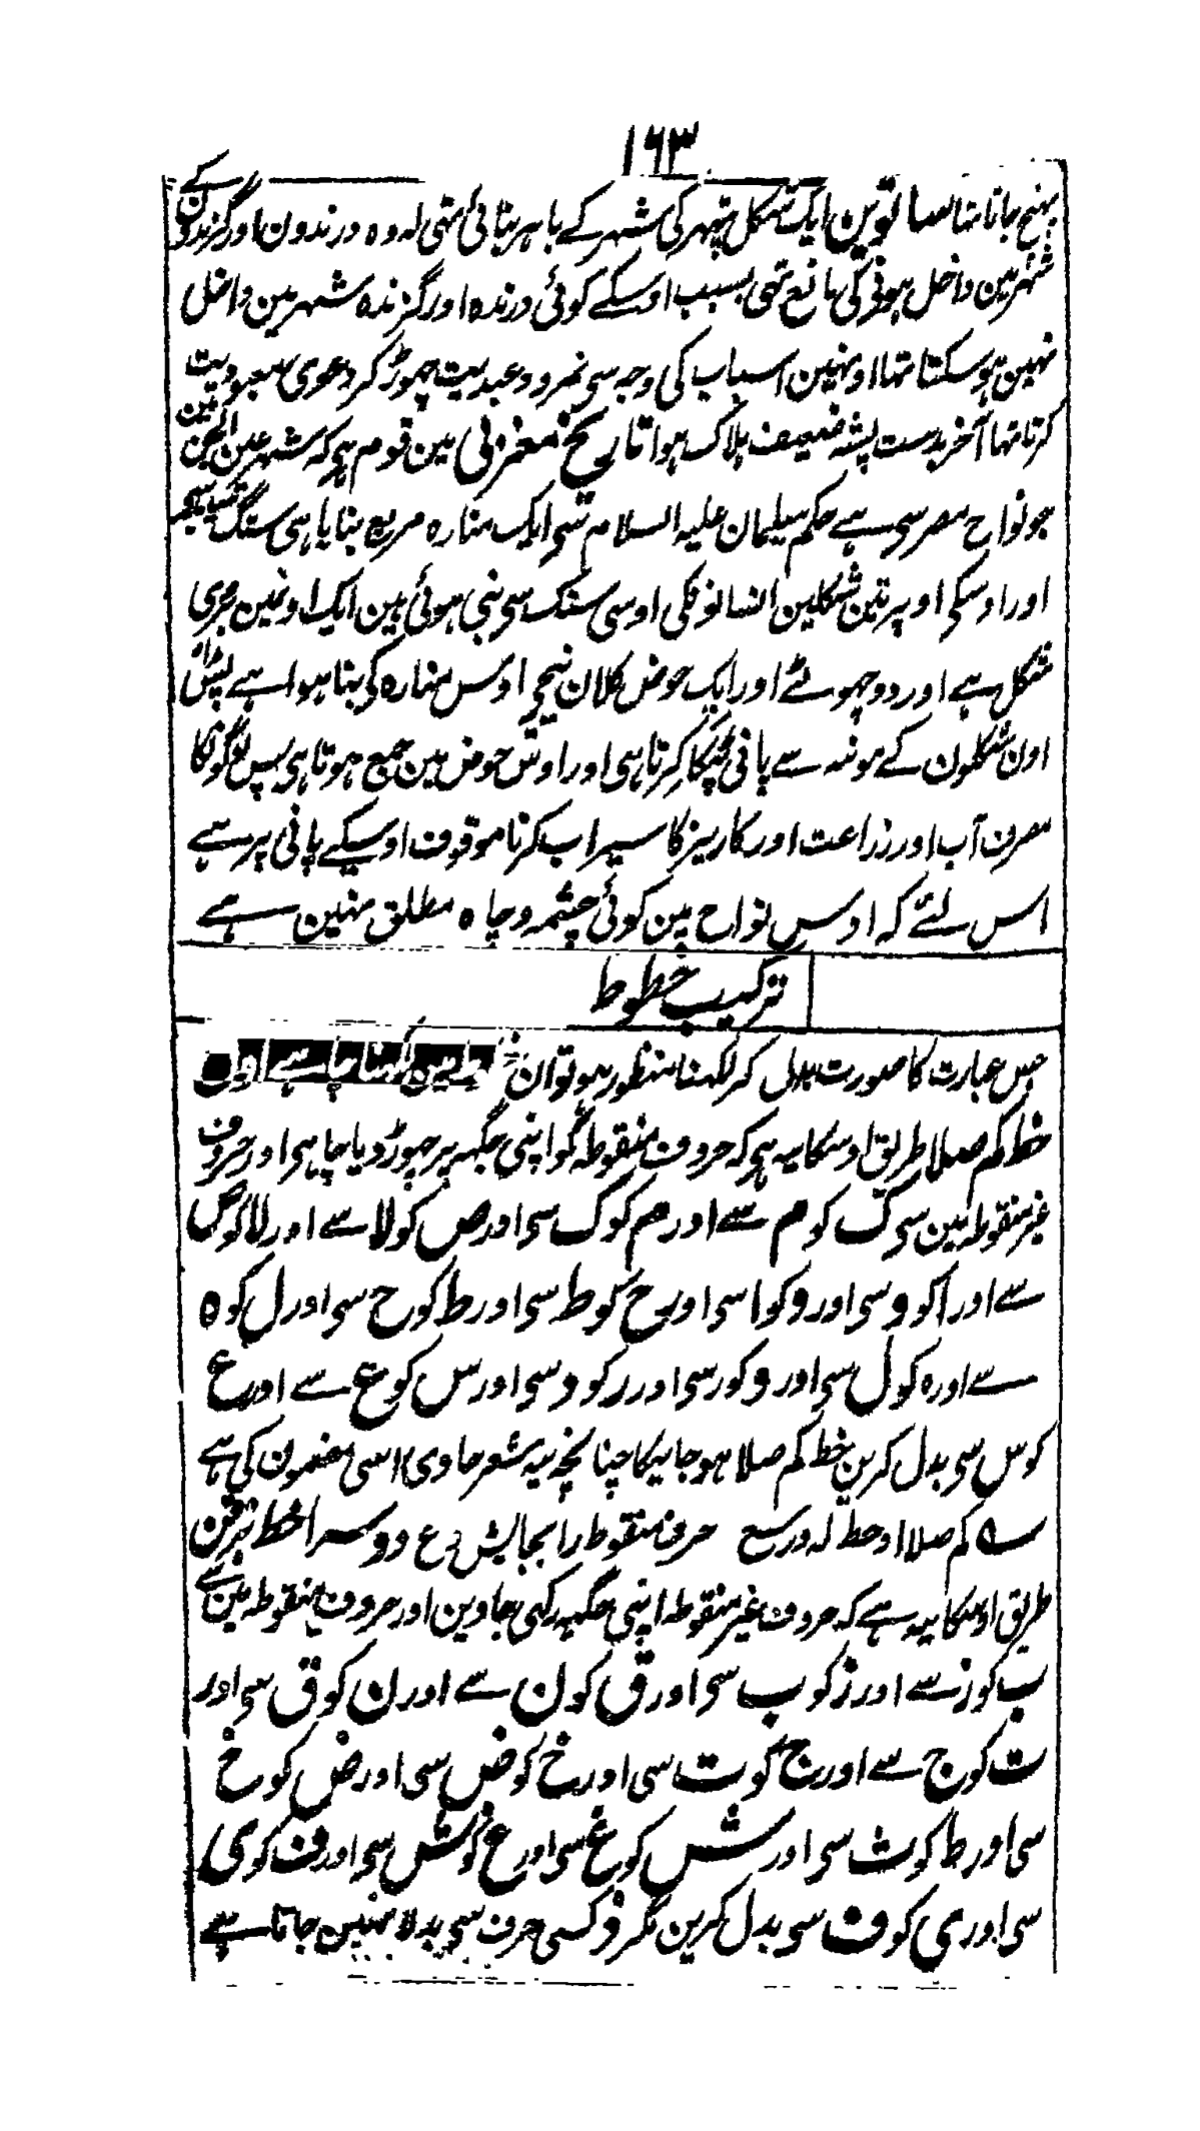 ۱۶۳
پہنچ جاتا تہا ساتوین ایک شکل پتہر کی شہر کے باہر بنائی تہی لہ وہ درندون اور گزندون کے
شہر مین داخل ہونی کی مانع تہی بسبب اوسکے کوئی درندہ اور گزندہ شہر مین داخل
نہین ہوسکتا تہا اونہین اسباب کی وجہ سی نمرود عبدیت چہوڑ کر دعوی معبودیت
کرتا تہا آخر بدست پشہ ضعیف ہلاک ہوا تاریخ مغربی مین قوم ہی کہ شہر عین الشمس مین
جو نواح مصر سی ہے حکم سلیمان علیہ السلام سی ایک منارہ مربع بنایا ہی سنگ
اور اوسکی اوپر تین شکلین انسانونکی اوسی سنگ سی بنی ہوئی ہین ایک اونمین بڑی
شکل ہے اور دو چہوٹے اور ایک حوض کلان نیچی اوس منارہ کی بنا ہوا ہے
اون شکلون کے مونہہ سے پانی ٹپکا کرتا ہی اور اوس حوض مین جمع ہوتا ہی پس لوگونکا
صرف آب اور زراعت اور کاریز کا سیراب کرنا موقوف اوسیکے پانی پر ہے
اس لئے کہ اوس نواح مین کوئی چشمہ و چاہ مطلق نہین ہے
ترکیب خطوط
جس عبارت کا صورت بدل کر لکہنا منظور ہو تو ان مین لکہنا چاہے اول
خط کم صلا طریق اوسکا یہ ہی کہ حروف منقوطہ کو اپنی جگہہ پر چہوڑ دیا چاہی اور حروف
غیر منقوطہ مین سی ک کو م سے اور م کو ک سی اور ص کو لا سے اور لا کو ص
سے اور ا کو و سی اور و کو ا سی اور ح کو ط سی اور ط کو ح سی اور ل کو ہ
سے اور ہ کو ل سی اور د کو ر سی اور ر کو د سی اور س کو ع سے اور ع
کو س سی بدل کرین خط کم صلا ہو جائیگا چنانچہ یہ شعر حاوی اسی مضمون کی ہے
ـہ کم صلا او حط لہ در سع حرف منقوط را بجایش دع دوسرا خط بزقن
طریق اوسکا یہہ ہے کہ حروف غیر منقوطہ اپنی جگہہ رکہی جاوین اور حروف منقوطہ مین سے
ب کو ز سے اور ز کو ب سی اور ق کو ن سے اور ن کو ق سی اور
ت کو ج سے اور ج کو ت سی اور خ کو ض سی اور ض کو خ
سی اور ظ کو ث سی اور ش کو غ سی اور غ کو ش سی اور ف کو ی
سی اور ی کو ف سی بدل کرین مگر ذ کسی حرف سی بدلا نہین جاتا ہے